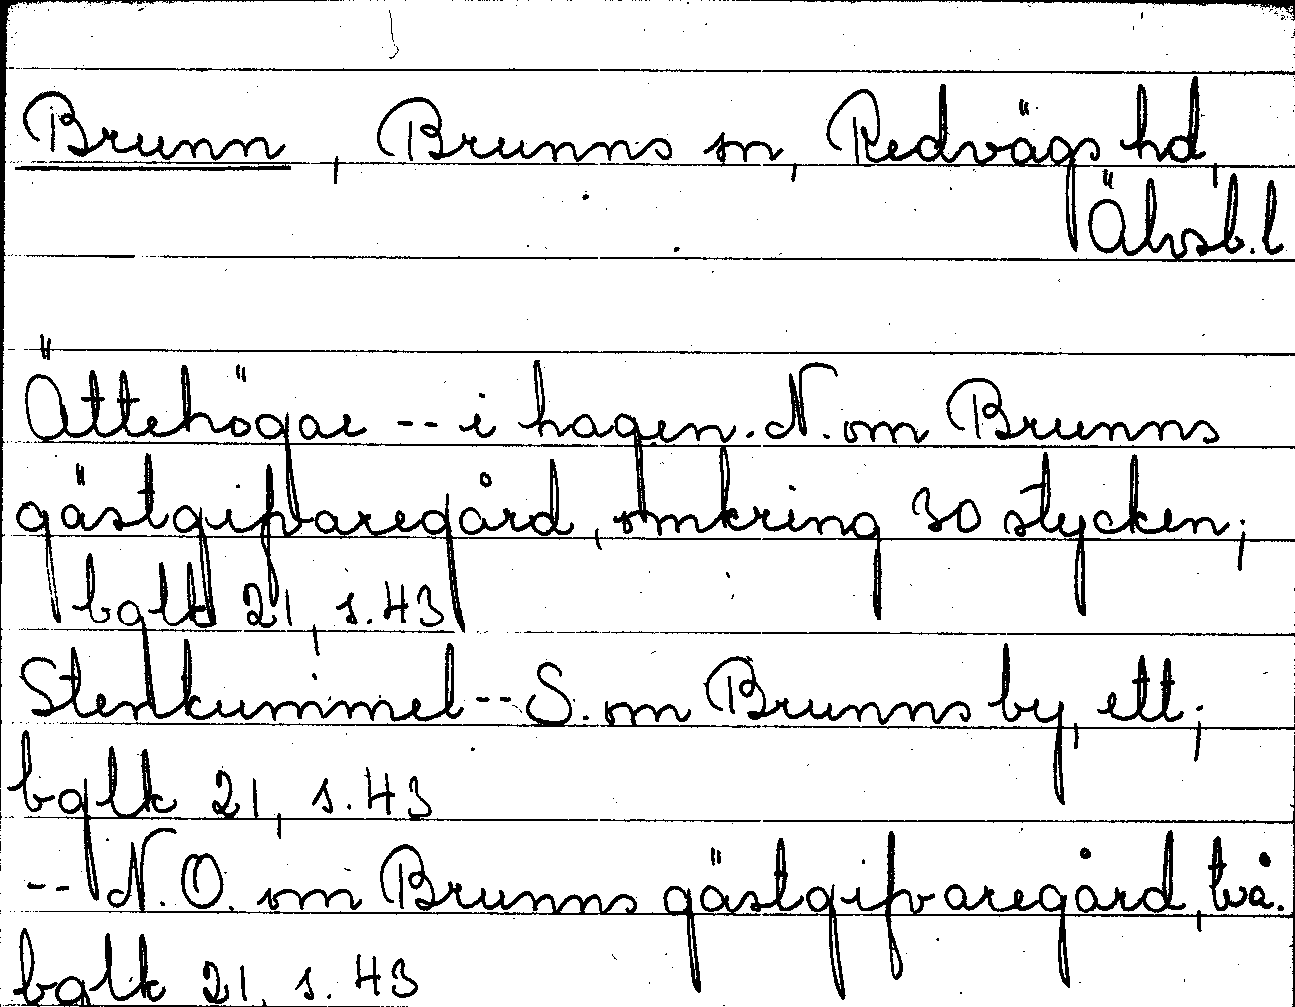 Brunn, Brunns sn, Redvägs hd,
Älvsb.l
Ättehögar -- i hagen. N. om Brunns
gästgifvaregård, omkring 30 stycken;
bglk 21, s. 43
Stenkummel -- S. om Brunns by, ett;
bglk 21, s. 43
-- N.O. om Brunns gästgifvaregård, två.
bglk 21, s. 43